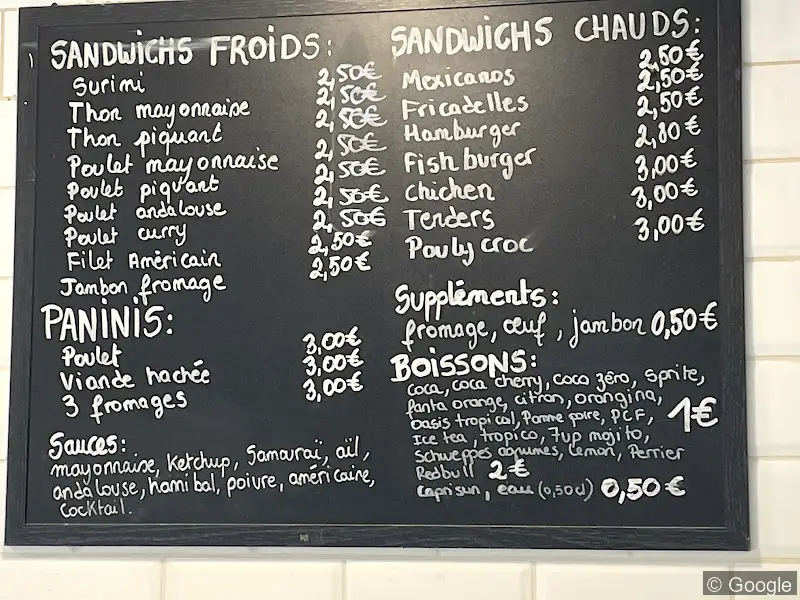 SANDWICHS FROIDS:
Surimi 2,50€
Thon mayonnaise 2,50€
Thon piquant 2,50€
Poulet mayonnaise 2,50€
Poulet piquant 2,50€
Poulet andalouse 2,50€
Poulet curry 2,50€
Filet Américain 2,50€
Jambon fromage 2,50€
PANINIS:
Poulet 3,00€
Viande hachée 3,00€
3 fromages 3,00€
Sauces:
mayonnaise, Ketchup, Samouraï, aïl,
andalouse, hannibal, poivre, américaine,
Cocktail.
SANDWICHS CHAUDS:
Mexicanos 2,50€
Fricadelles 2,50€
Hamburger 2,50€
Fish burger 2,80€
Chichen 3,00€
Tenders 3,00€
Pouly croc 3,00€
Suppléments:
fromage, œuf, jambon 0,50€
BOISSONS:
Coca, coca cherry, coca zéro, Sprite,
fanta orange, citron, orangina,
oasis tropical, Pomme poire, PCF, 1€
Ice tea, tropico, 7up mojito,
Schweppes agrumes, Lemon, Perrier
Redbull 2€
caprisun, eau (0,50cl) 0,50€
© Google